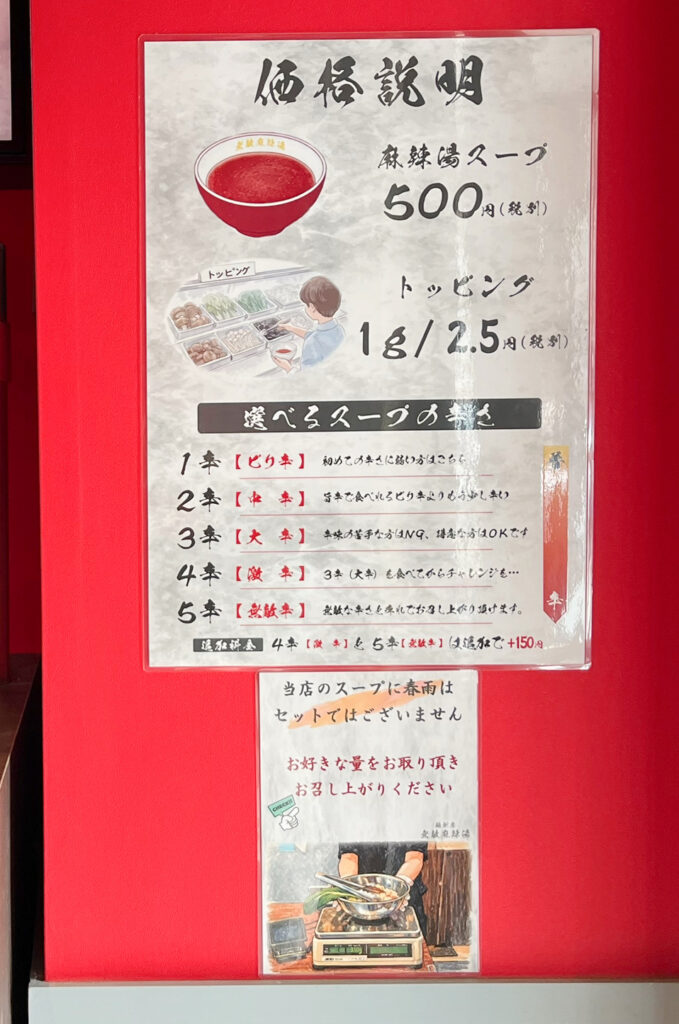 価格説明
無敵麻辣湯
麻辣湯スープ
500円(税別)
トッピング
トッピング
1g/2.5円(税別)
選べるスープの辛さ
1辛【ピリ辛】初めての辛さに弱い方はこちら
2辛【中 辛】旨辛で食べれるピリ辛よりもう少し辛い
3辛【大 辛】辛味の苦手な方はNG、得意な方はOKです
4辛【激 辛】3辛(大辛)を食べてからチャレンジを…
5辛【無敵辛】無敵な辛さを求れてお召し上がり頂けます。
辛
追加料金 4辛【激 辛】と5辛【無敵辛】は追加で+150円
当店のスープに春雨は
セットではございません
お好きな量をお取り頂き
お召し上がりください
CHECK!!
無敵麻辣湯